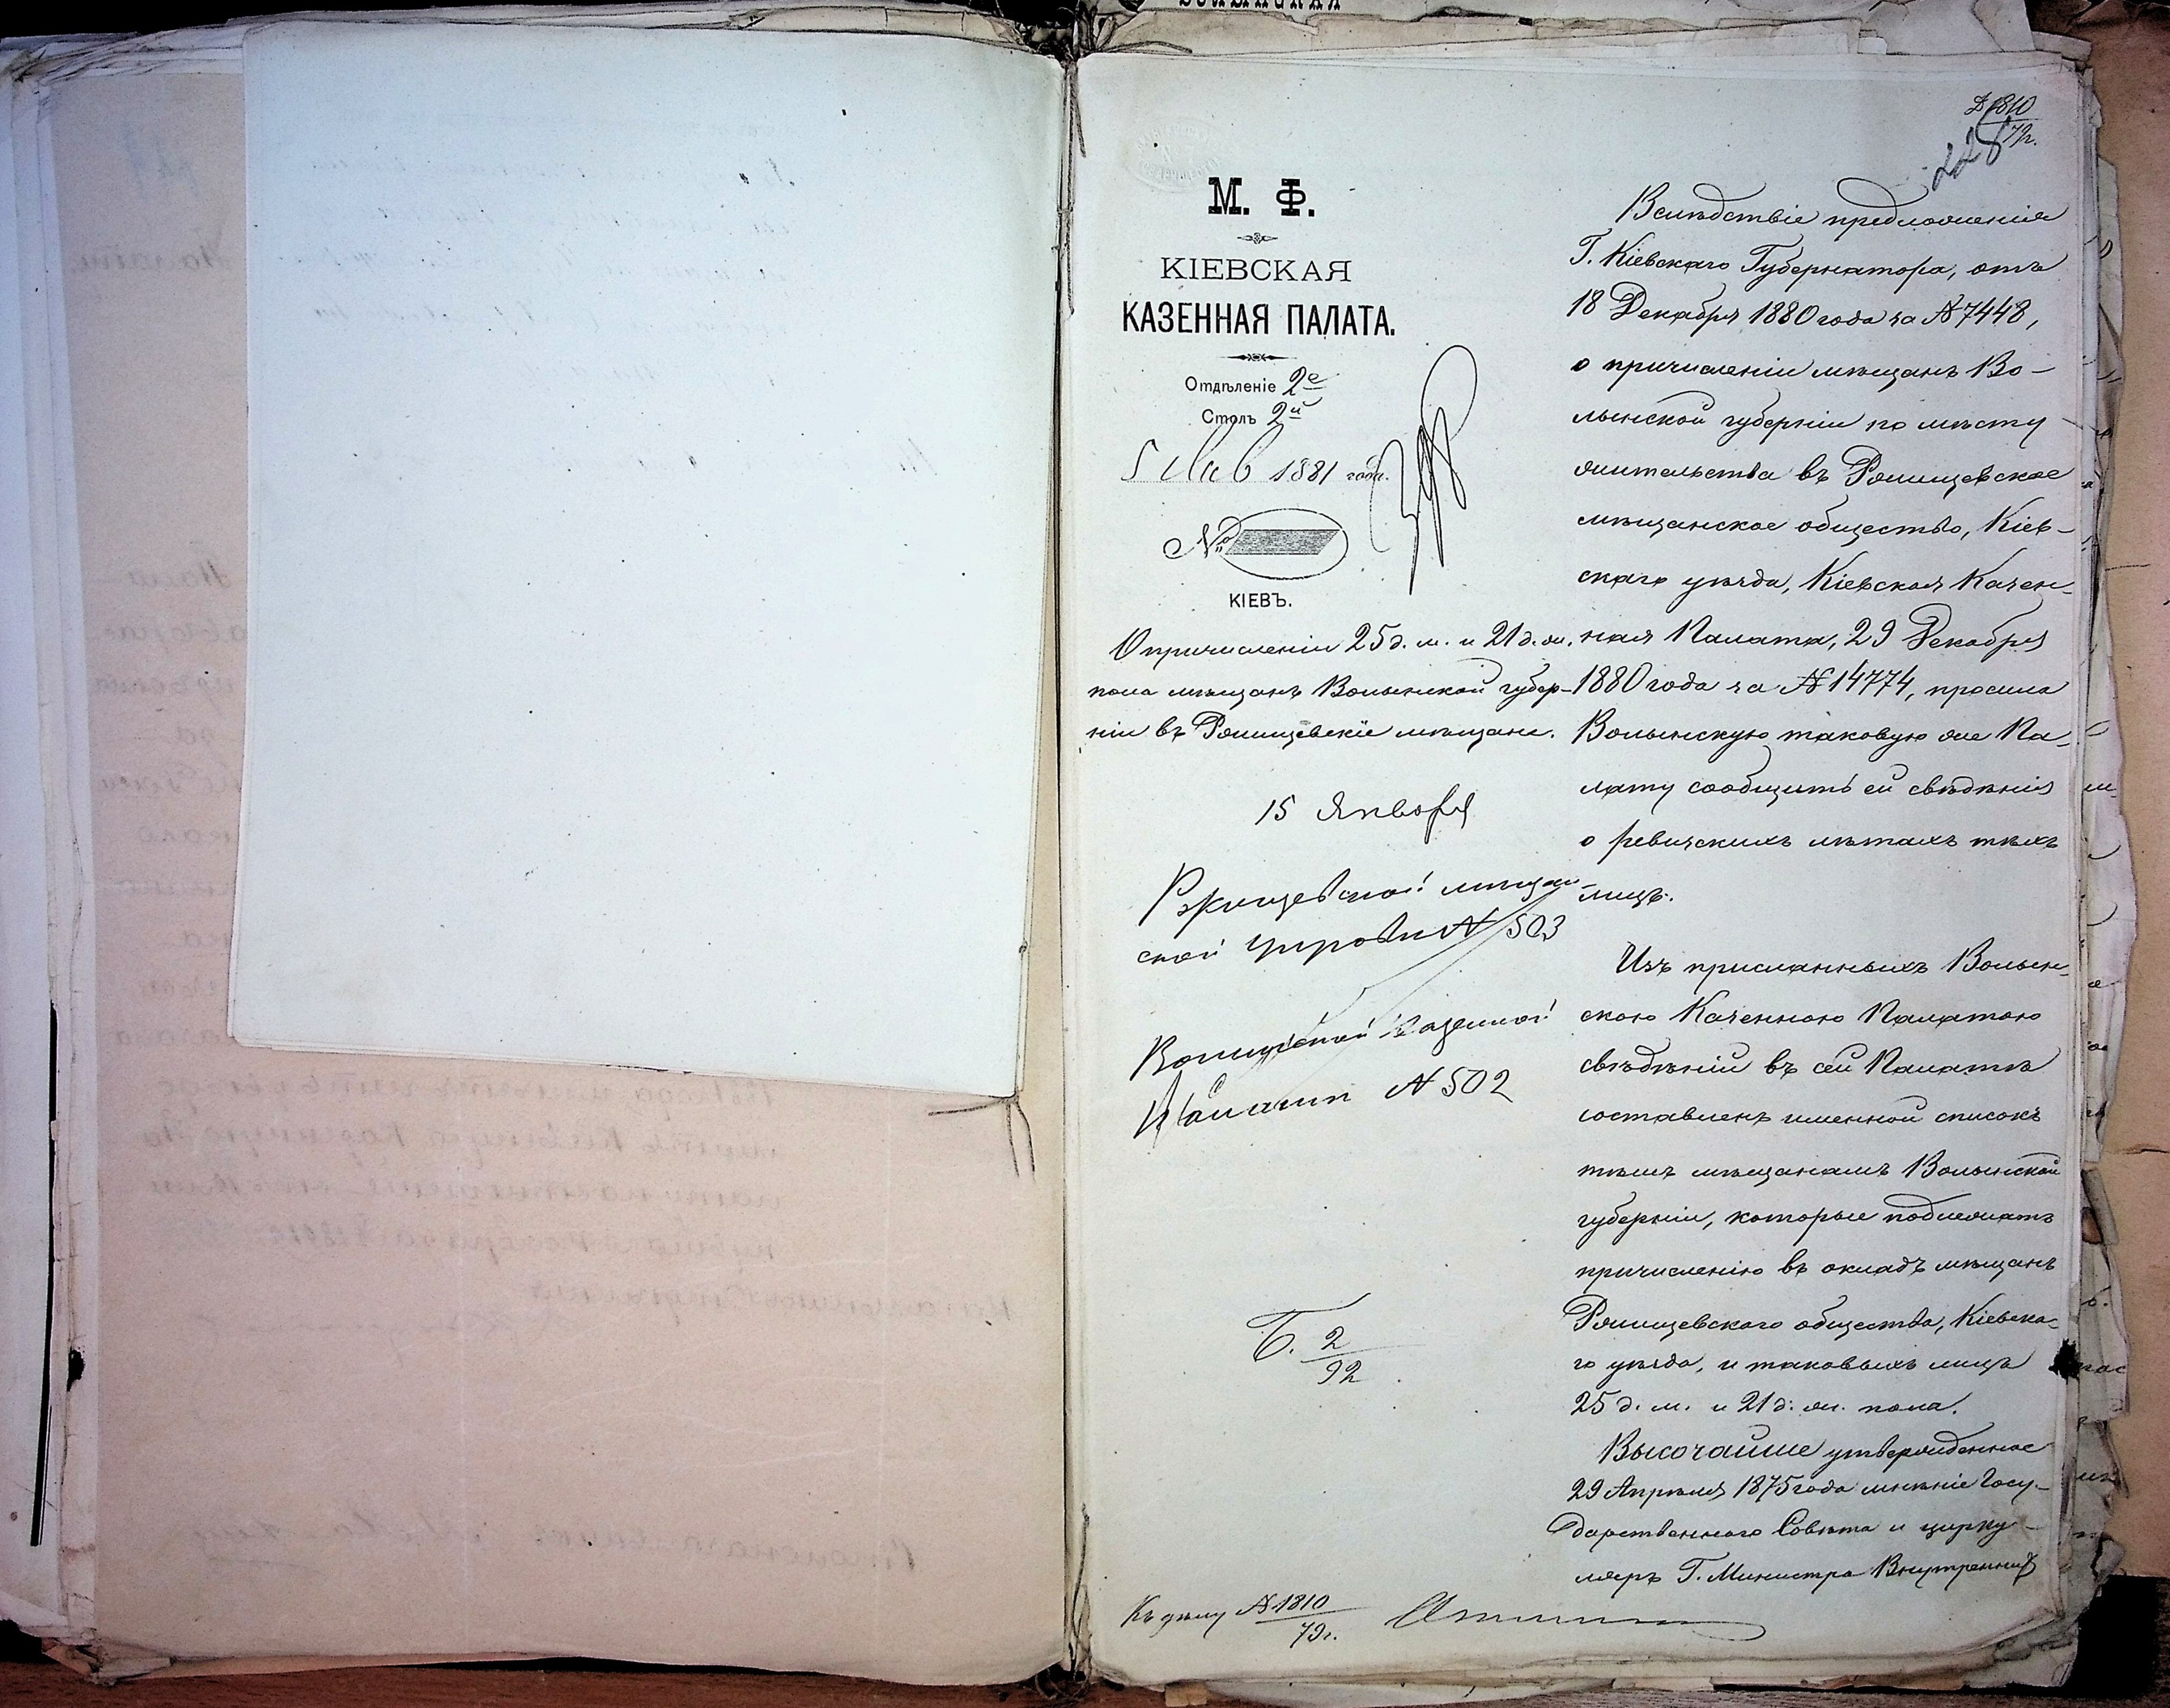 Д. 1810
79г.
228
М. Ф.
КІЕВСКАЯ
КАЗЕННАЯ ПАЛАТА.
Отдѣленіе 2е
Столъ 2й
5 Янв 1881 года.
№
КІЕВЪ.
О причисленіи 25 д. м. и 21 д. ж.
пола мѣщанъ Волынской губер-
ніи въ Ржищевскіе мѣщане.
15 Января
Ржищевской мѣщан-
ской управѣ № 503
Волынской Казенной
Палатѣ № 502
Б. 2
92
Къ дѣлу № 1810
79г.
Вслѣдствіе предложенія
Г. Кіевскаго Губернатора, отъ
18 Декабря 1880 года за № 7448,
о причисленіи мѣщанъ Во-
лынской губерніи по мѣсту
жительства въ Ржищевское
мѣщанское общество, Кіев-
скаго уѣзда, Кіевская Казен-
ная Палата, 29 Декабря
1880 года за № 14774, просила
Волынскую таковую же Па-
лату сообщить ей свѣдѣнія
о ревизскихъ лѣтахъ тѣхъ
лицъ.
Изъ присланныхъ Волын-
скою Казенною Палатою
свѣдѣній въ сей Палатѣ
составленъ именной списокъ
тѣмъ мѣщанамъ Волынской
губерніи, которые подлежатъ
причисленію въ окладъ мѣщанъ
Ржищевскаго общества, Кіевска-
го уѣзда, и таковыхъ лицъ
25 д. м. и 21 д. ж. пола.
Высочайше утвержденное
29 Апрѣля 1875 года мнѣніе Госу-
дарственнаго Совѣта и цирку-
ляръ Г. Министра Внутреннихъ